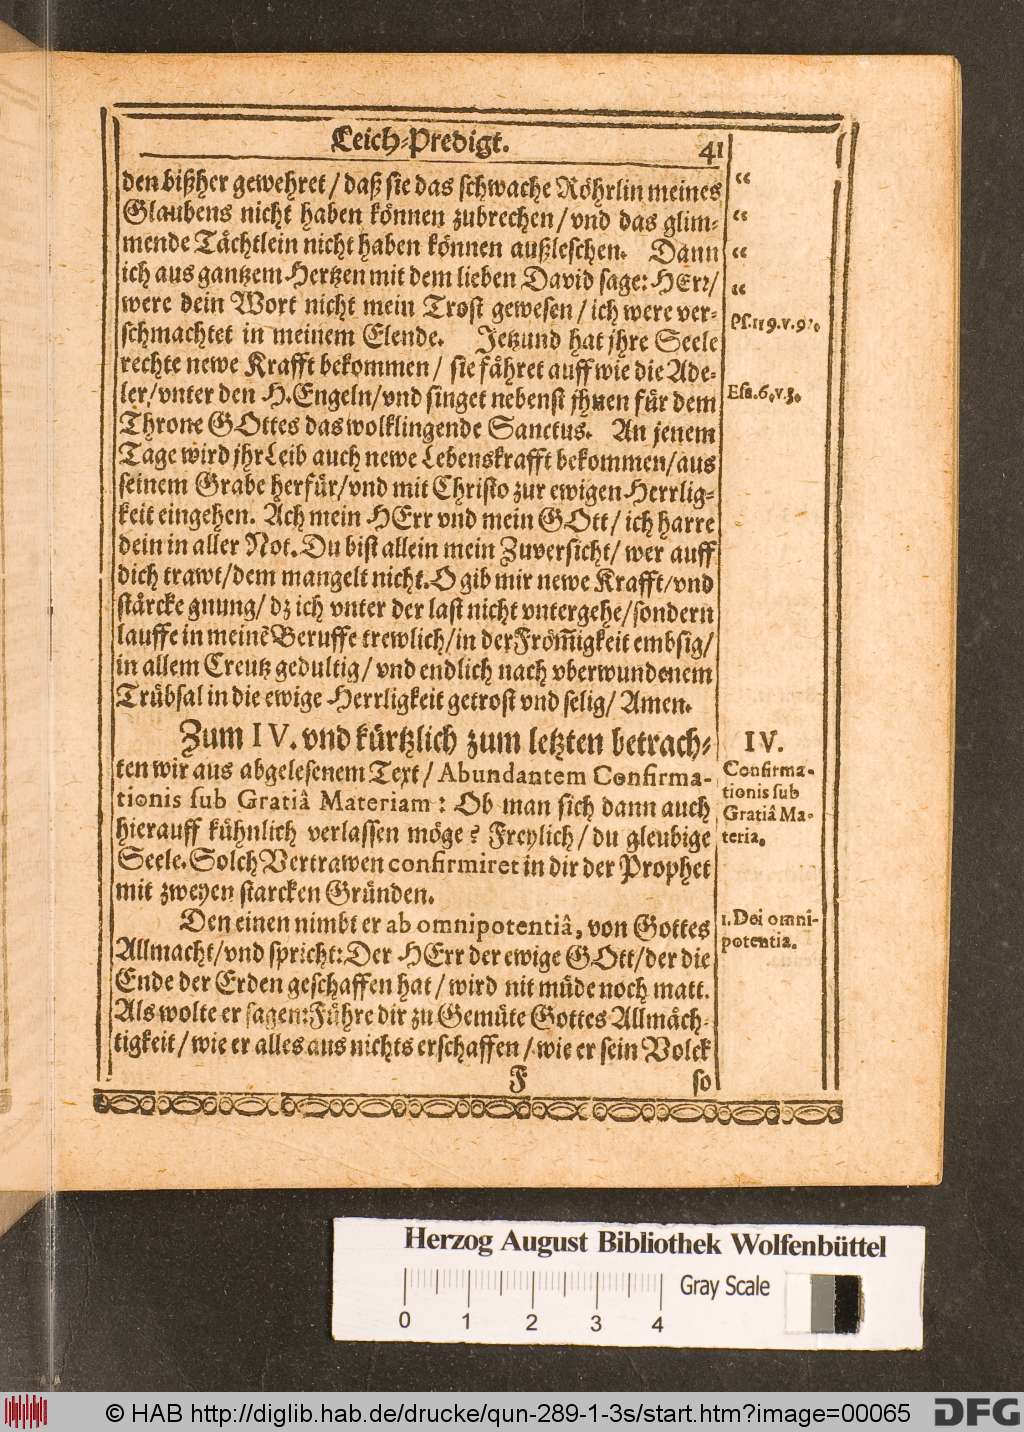 Leich-Predigt. 41
den bißher gewehret / daß sie das schwache Röhrlin meines
Glaubens nicht haben können zubrechen / vnd das glim-
mende Tächtlein nicht haben können außleschen. Dann
ich aus gantzem Hertzen mit dem lieben David sage: HErr /
were dein Wort nicht mein Trost gewesen / ich were ver-
schmachtet in meinem Elende. Jetzund hat jhre Seele
rechte newe Krafft bekommen / sie fähret auff wie die Ade-
ler / vnter den H. Engeln / vnd singet nebenst jhnen für dem
Throne GOttes das wolklingende Sanctus. An jenem
Tage wird jhr Leib auch newe Lebenskrafft bekommen / aus
seinem Grabe herfür / vnd mit Christo zur ewigen Herrlig-
keit eingehen. Ach mein HErr vnd mein GOtt / ich harre
dein in aller Not. Du bist allein mein Zuversicht / wer auff
dich trawt / dem mangelt nicht. O gib mir newe Krafft / vnd
stärcke gnung / dz ich vnter der last nicht vntergehe / sondern
lauffe in meinē Beruffe trewlich / in der From̄igkeit embsig /
in allem Creutz gedultig / vnd endlich nach vberwundenem
Trübsal in die ewige Herrligkeit getrost vnd selig / Amen.
Zum IV. vnd kürtzlich zum letzten betrach-
ten wir aus abgelesenem Text / Abundantem Confirma-
tionis sub Gratiâ Materiam : Ob man sich dann auch
hierauff kühnlich verlassen möge ? Freylich / du gleubige
Seele. Solch Vertrawen confirmiret in dir der Prophet
mit zweyen starcken Gründen.
Den einen nimbt er ab omnipotentiâ, von Gottes
Allmacht / vnd spricht: Der HErr der ewige GOtt / der die
Ende der Erden geschaffen hat / wird nit müde noch matt.
Als wolte er sagen: Führe dir zu Gemüte Gottes Allmäch-
tigkeit / wie er alles aus nichts erschaffen / wie er sein Volck
F so
“
“
“
“
Ps. 119. v. 92.
Esa. 6. v. 3.
IV.
Confirma-
tionis sub
Gratiâ Ma-
teria.
1. Dei omni-
potentia.
Herzog August Bibliothek Wolfenbüttel
Gray Scale
0 1 2 3 4
© HAB http://diglib.hab.de/drucke/qun-289-1-3s/start.htm?image=00065
DFG